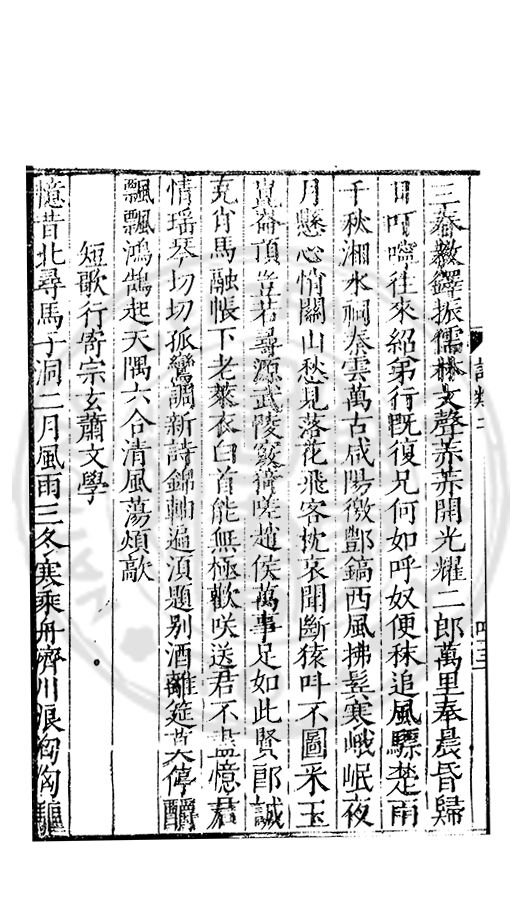 三春數鐸振儒林文聲莽莽開光耀二郎萬里奉晨昏歸
日叮嚀往來紹第行既復兄何如呼奴便秣追風驃楚雨
千秋湘水祠秦雲萬古咸陽徼酆鎬西風拂鬂寒峨岷夜
月懸心悄關山愁見落花飛客枕哀聞斷猿呌不圖采玉
崑崙頂豈若尋源武陵竅衛嗟趙侯萬事足如此賢郎誠
克肖馬融帳下老萊衣白首能無極歡咲送君不盡憶君
情瑶琴切切孤鸞調新詩錦軸遍湏題别酒離筵莫停釂
飄飄鴻鵠起天隅六合清風蕩煩歊
短歌行寄宗玄蕭文學
憶昔北尋馬子洞二月風雨三冬寒乘舟濟川浪匈匈驅
詩類二